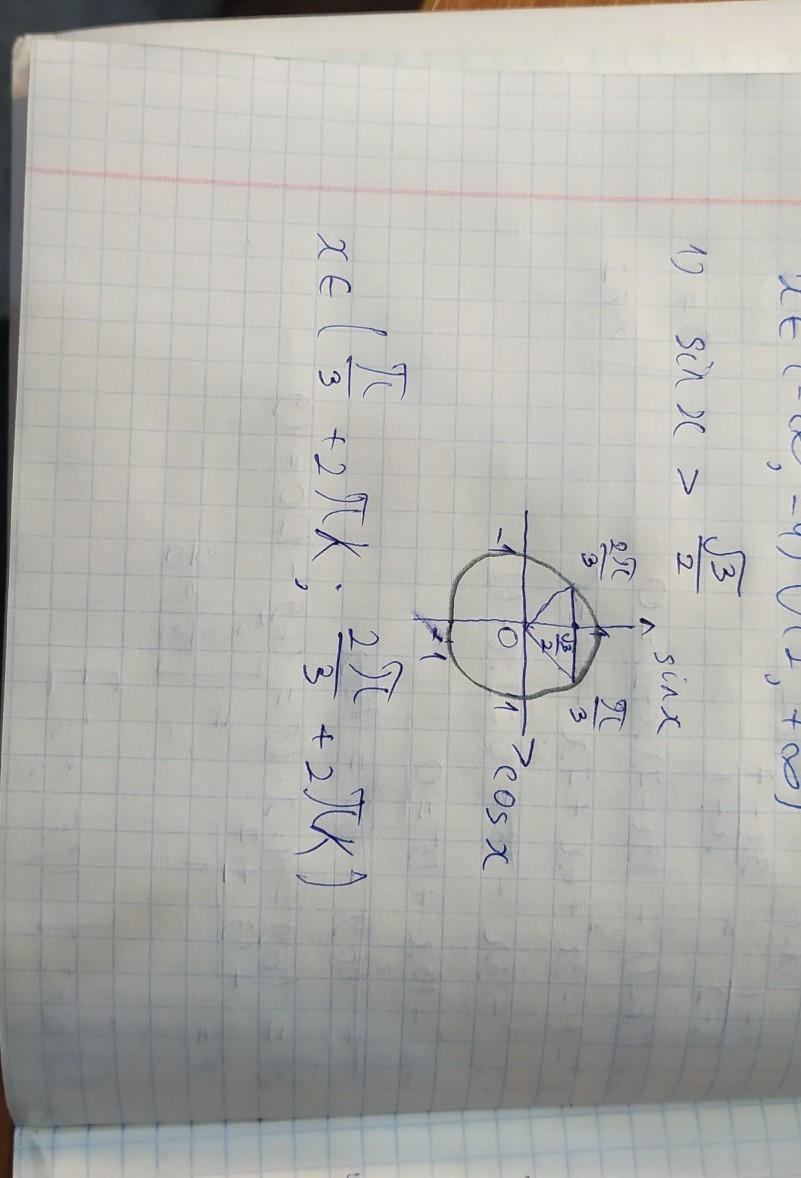 x ∈ (-∞; -4) ∪ (1; +∞)
1) sin x > √3/2
sin x
2π/3
π/3
√3/2
-1
0
1
cos x
-1
x ∈ (π/3 + 2πk; 2π/3 + 2πk)